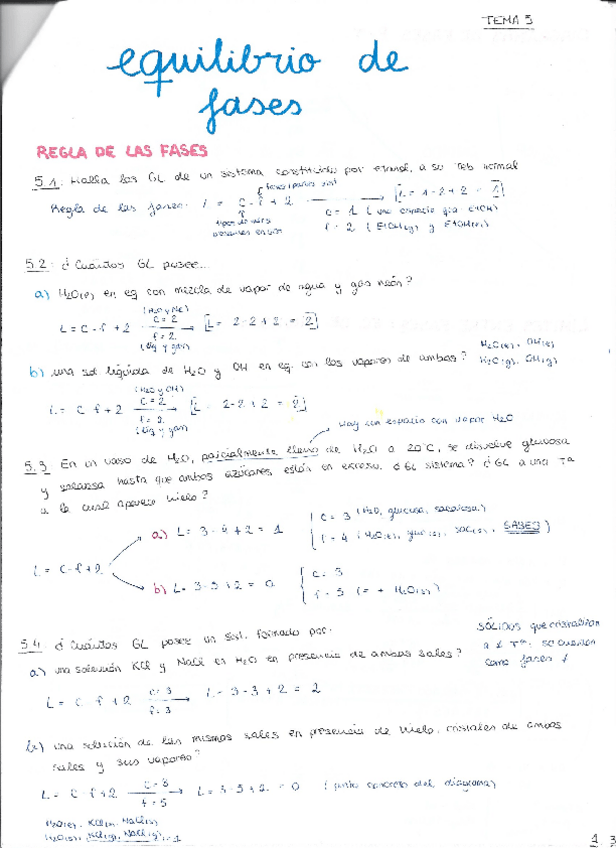 TEMA 5
equilibrio de
fases
REGLA DE LAS FASES
5.1. Halla los GL de un sistema constituido por etanol, a su Teb normal
Regla de las fases: L = C - f + 2 → [L = 1 - 2 + 2 = 1]
C = 1 (una especie qca EtOH)
f = 2 (EtOH(l) y EtOH(v))
5.2. ¿Cuántos GL posee...
a) H₂O(l) en eq con mezcla de vapor de agua y gas neón?
(H₂O y Ne)
L = C - f + 2 C = 2 → [L = 2 - 2 + 2 = 2]
f = 2
(liq y gas)
b) una sol líquida de H₂O y OH en eq. con los vapores de ambos?
H₂O(l), OH(l)
H₂O(g), OH(g)
(H₂O y OH)
L = C - f + 2 C = 2 → [L = 2 - 2 + 2 = 2]
f = 2
(liq y gas)
Hay con espacio con vapor H₂O
5.3. En un vaso de H₂O, parcialmente lleno de H₂O a 20°C, se disuelve glucosa
y sacarosa hasta que ambos azúcares están en exceso. ¿GL sistema? ¿GL a una Tª
a la cual aparece hielo?
a) L = 3 - 4 + 2 = 1
C = 3 (H₂O, glucosa, sacarosa)
f = 4
L = C - f + 2
b) L = 3 - 5 + 2 = 0
C = 3
f = 5 (= + H₂O(s))
SÓLIDOS que cristalizan
a ≠ Tª. se cuentan
como fases ≠
5.4. ¿Cuántos GL posee un sist. formado por:
a) una solución KCl y NaCl en H₂O en presencia de ambas sales?
L = C - f + 2 C = 3 → L = 3 - 3 + 2 = 2
f = 3
b) una solución de las mismas sales en presencia de hielo, cristales de ambas
sales y sus vapores?
L = C - f + 2 C = 3 → L = 3 - 5 + 2 = 0 (punto concreto del diagrama)
f = 5
1
3